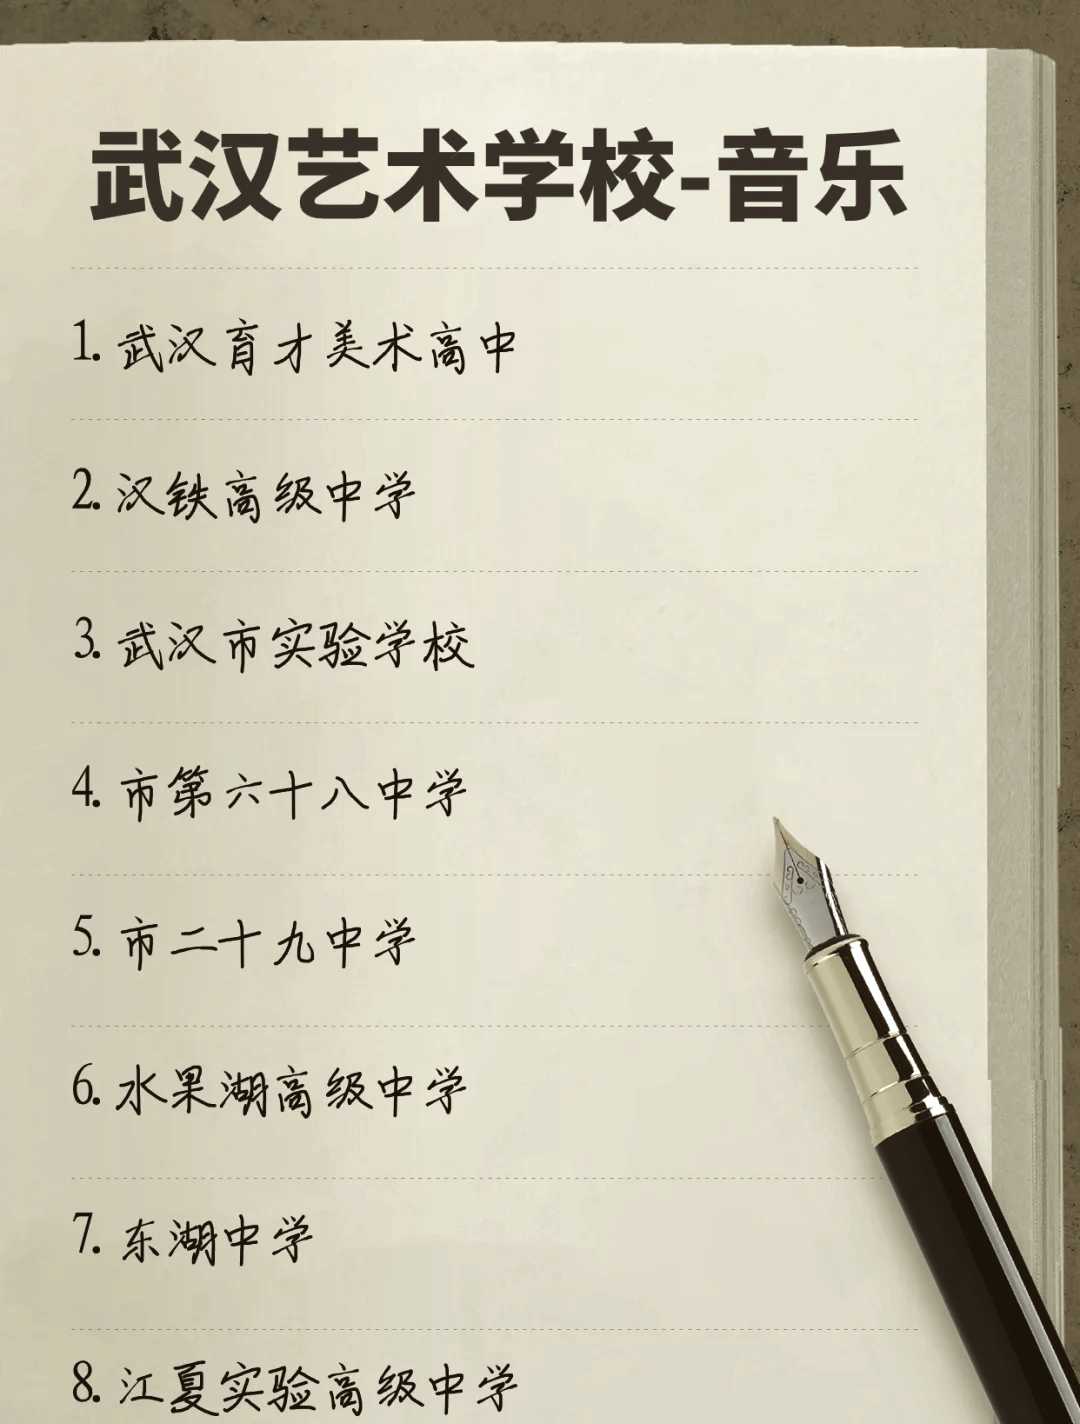 武汉艺术学校-音乐
1. 武汉育才美术高中
2. 汉铁高级中学
3. 武汉市实验学校
4. 市第六十八中学
5. 市二十九中学
6. 水果湖高级中学
7. 东湖中学
8. 江夏实验高级中学